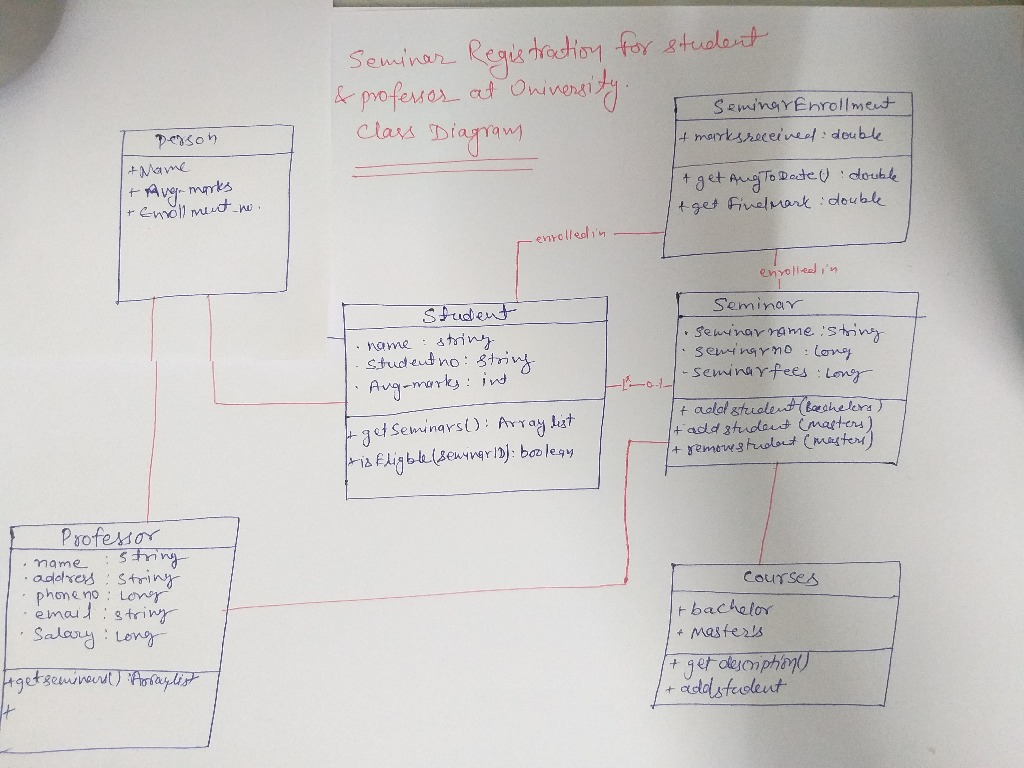 Seminar Registration for student
& professor at University.
Class Diagram
Person
+ Name
+ Avg-marks
+ Enrollment_no.
SeminarEnrollment
+ marksreceived : double
+ get AvgToDate() : double
+ get Finelmark : double
enrolledin
enrolledin
Student
. name : string
. studentno : string
. Avg-marks : int
+ getSeminars() : Array list
+ isEligble(seminarID) : boolean
0..1
Seminar
. seminarname : string
. seminarno : Long
- seminarfees : Long
+ addstudent (Bachelers)
+ add student (masters)
+ removestudent (masters)
Professor
. name : string
. address : string
. phoneno : Long
. email : string
. Salary : Long
+getseminars() : Arraylist
+
Courses
+ bachelor
+ Master's
+ get description()
+ addstudent